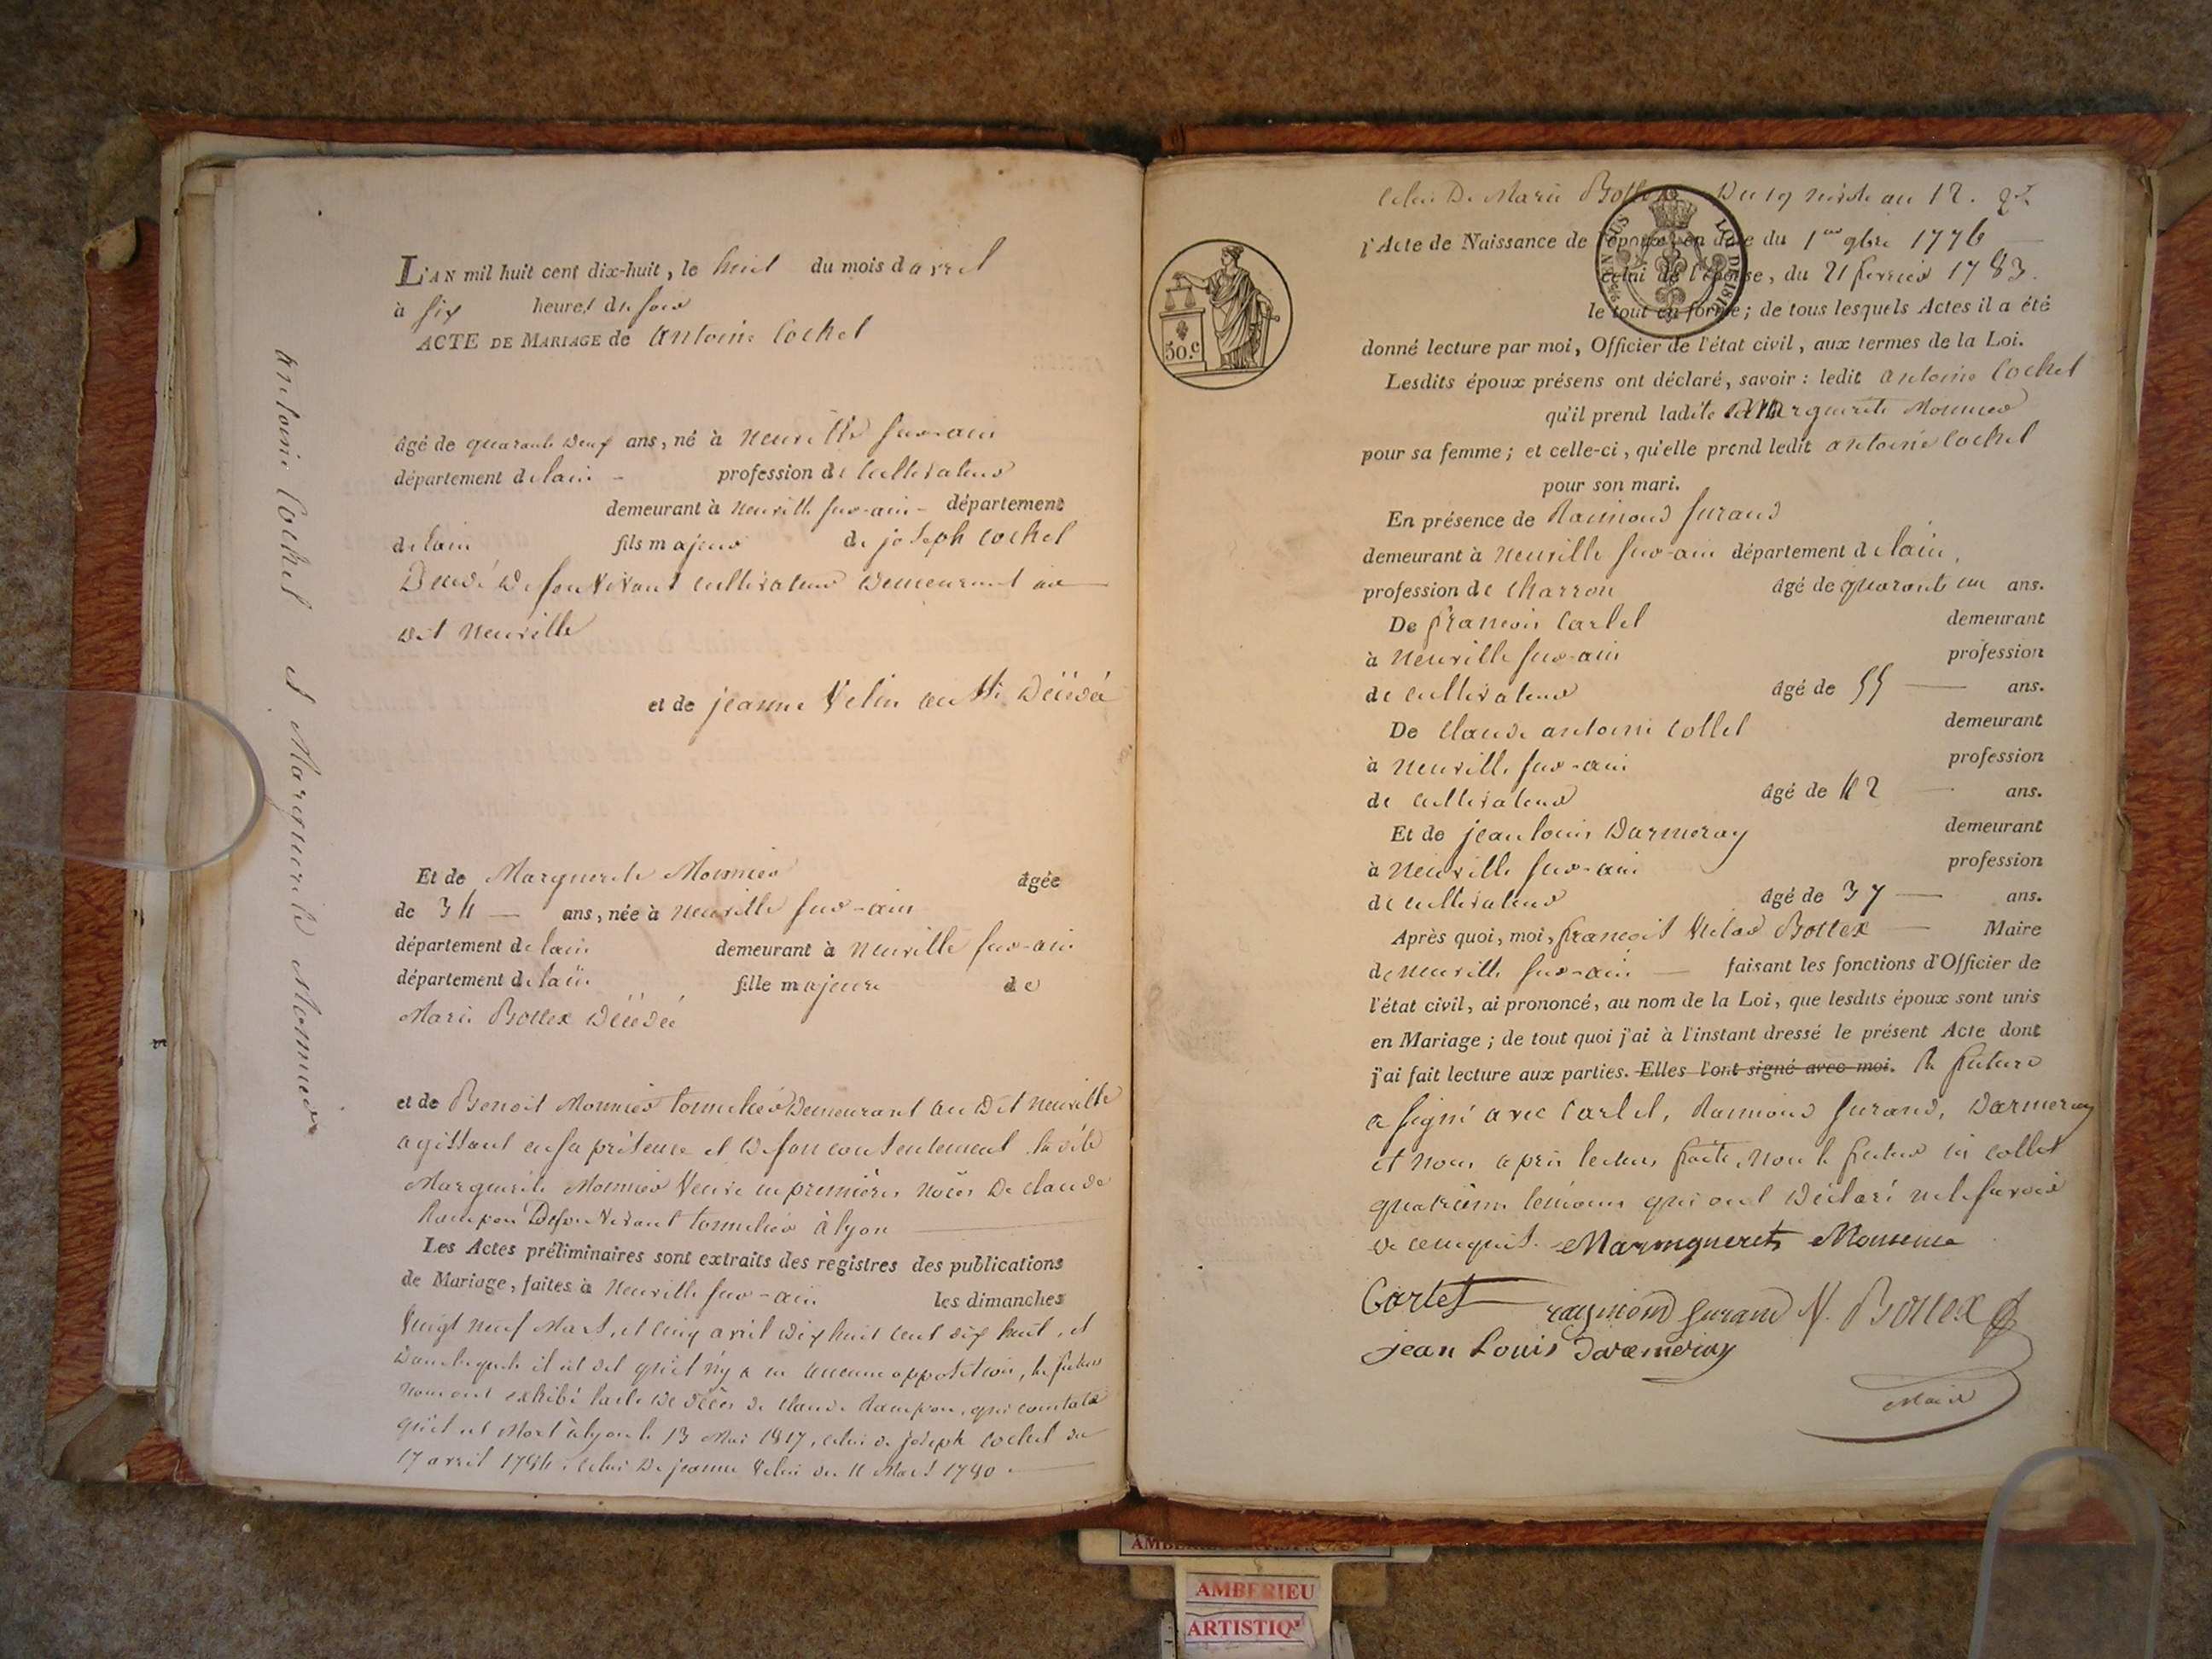 Antoine Cochet & Marguerite Monnier
L'AN mil huit cent dix-huit, le huit du mois d avril
à six heures du soir
ACTE DE MARIAGE de antoine Cochet
âgé de quarante deux ans, né à neuville sur-ain
département de lain - profession de Cultivateur
demeurant à neuville sur-ain - département
de lain fils majeur de joseph cochet
Décédé de son vivant cultivateur demeurant au
dit neuville
et de jeanne Velin aussi Décédée
Et de Marguerite Monnier âgée
de 34 — ans, née à neuville sur-ain
département de lain demeurant à neuville sur-ain
département de lain fille majeure de
Marie Bottex Décédée
et de Benoit Monnier tonnelier Demeurant au Dit neuville
agissant en sa présence et de son consentement. ladite
Marguerite Monnier Veuve en premières noces De claude
Rampon De son Vivant tonnelier à lyon
Les Actes préliminaires sont extraits des registres des publications
de Mariage, faites à neuville sur-ain les dimanches
Vingt neuf Mars, et cinq avril dix huit cent dix huit, et
dans lesquels il est dit qu'il n'y a eu aucune opposition, les futurs
nous ont exhibé l'acte de décès de claude Rampon, qui constate
qu'il est Mort à lyon le 13 Mai 1817, celui de joseph cochet du
17 avril 1784, celui De jeanne Velin du 11 Mars 1780.
Celui De Marie Bottex Du 19 nivôse an 12. &
l'Acte de Naissance de l'époux en date du 1er 9bre 1776 —
celui de l'épouse, du 21 fevrier 1783.
le tout en forme; de tous lesquels Actes il a été
LOI DE 1816
50.c
donné lecture par moi, Officier de l'état civil, aux termes de la Loi.
Lesdits époux présens ont déclaré, savoir : ledit antoine Cochet
qu'il prend ladite Marguerite Monnier
pour sa femme; et celle-ci, qu'elle prend ledit antoine Cochet
pour son mari.
En présence de Raimond Jurand
demeurant à neuville sur-ain département de lain,
profession de Charron âgé de quarante un ans.
De francois Carlet demeurant
à neuville sur-ain profession
de cultivateur âgé de 55 — ans.
De Claude antoine Collet demeurant
à neuville sur-ain profession
de cultivateur âgé de 42 ans.
Et de jean louis Darmeray demeurant
à neuville sur-ain profession
de cultivateur âgé de 37 — ans.
Après quoi, moi, francois Bottex — Maire
de neuville sur-ain — faisant les fonctions d'Officier de
l'état civil, ai prononcé, au nom de la Loi, que lesdits époux sont unis
en Mariage; de tout quoi j'ai à l'instant dressé le présent Acte dont
j'ai fait lecture aux parties. Elles l'ont signé avec moi. la future
a signé avec Carlet, Raimond Jurand, Darmeray
et nous après lecture faite, non le futur ni collet
quatrième témoin qui ont Déclaré ne le savoir
de ce enquis. Marmguerets Monnie
Cartet raymond Jurand N. Bottex
jean Louis Daremeray
Maire
AMBERIEU
ARTISTIQ